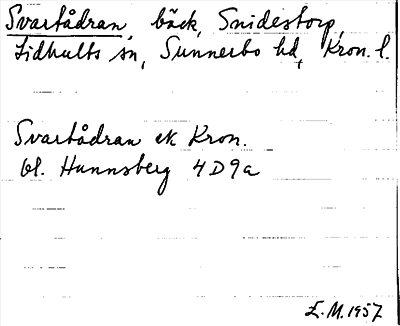 Svartådran, bäck, Snidestorp,
Lidhults sn, Sunnerbo hd, Kron. l.
Svartådran ek Kron.
bl. Hunnsberg 4D9a
L.M. 1957